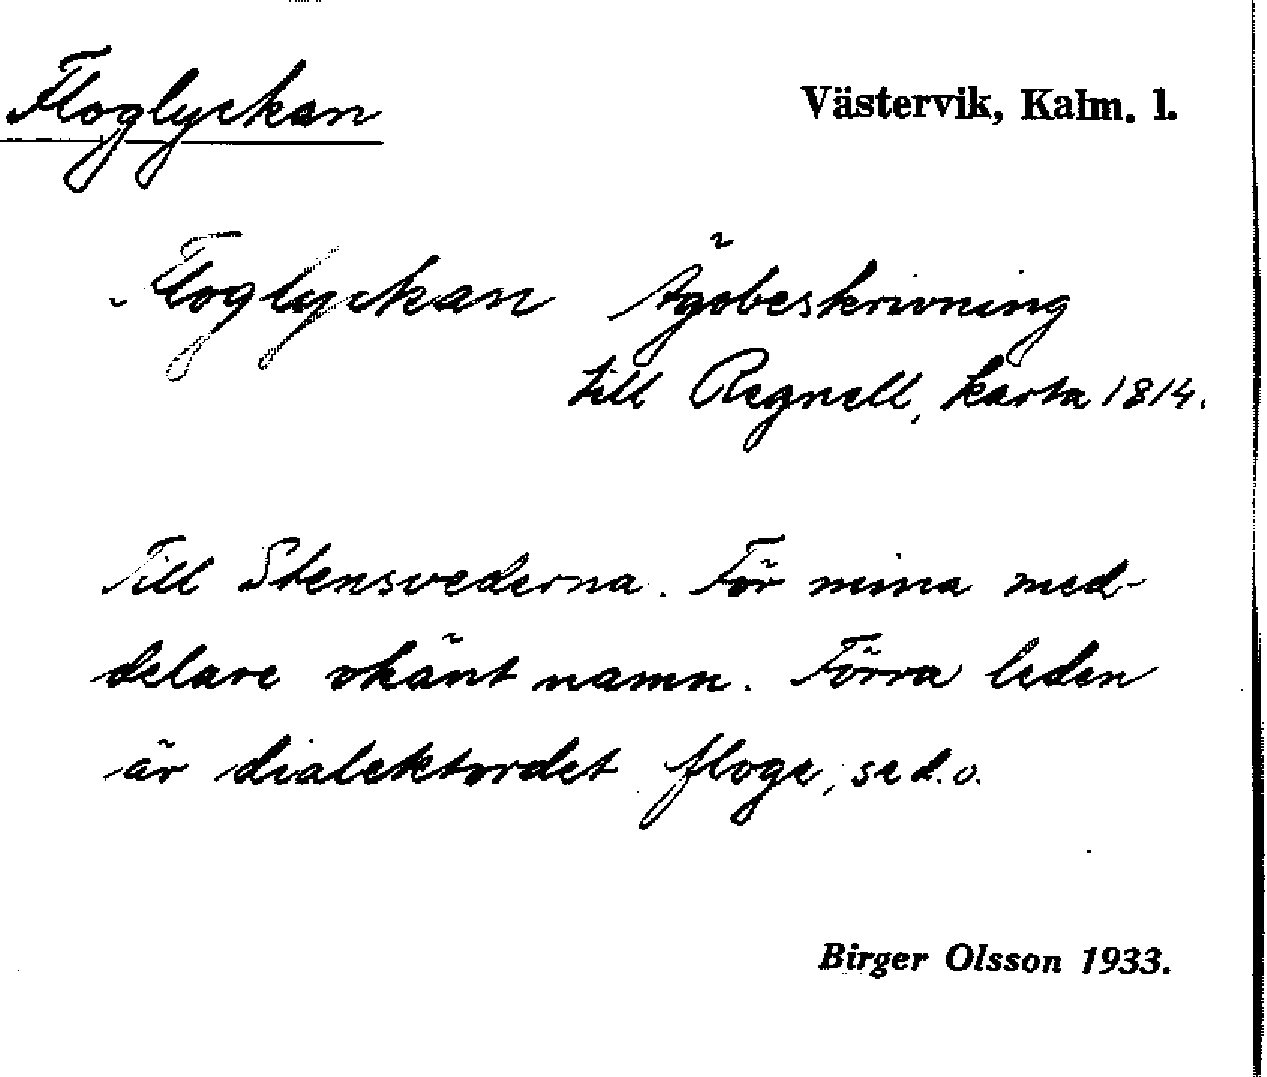 Floglyckan
Västervik, Kalm. l.
Floglyckan Ägobeskrivning
till Regnell, karta 1814.
Till Stensvederna. För mina med-
delare okänt namn. Förra leden
är dialektordet floge, se d. o.
Birger Olsson 1933.